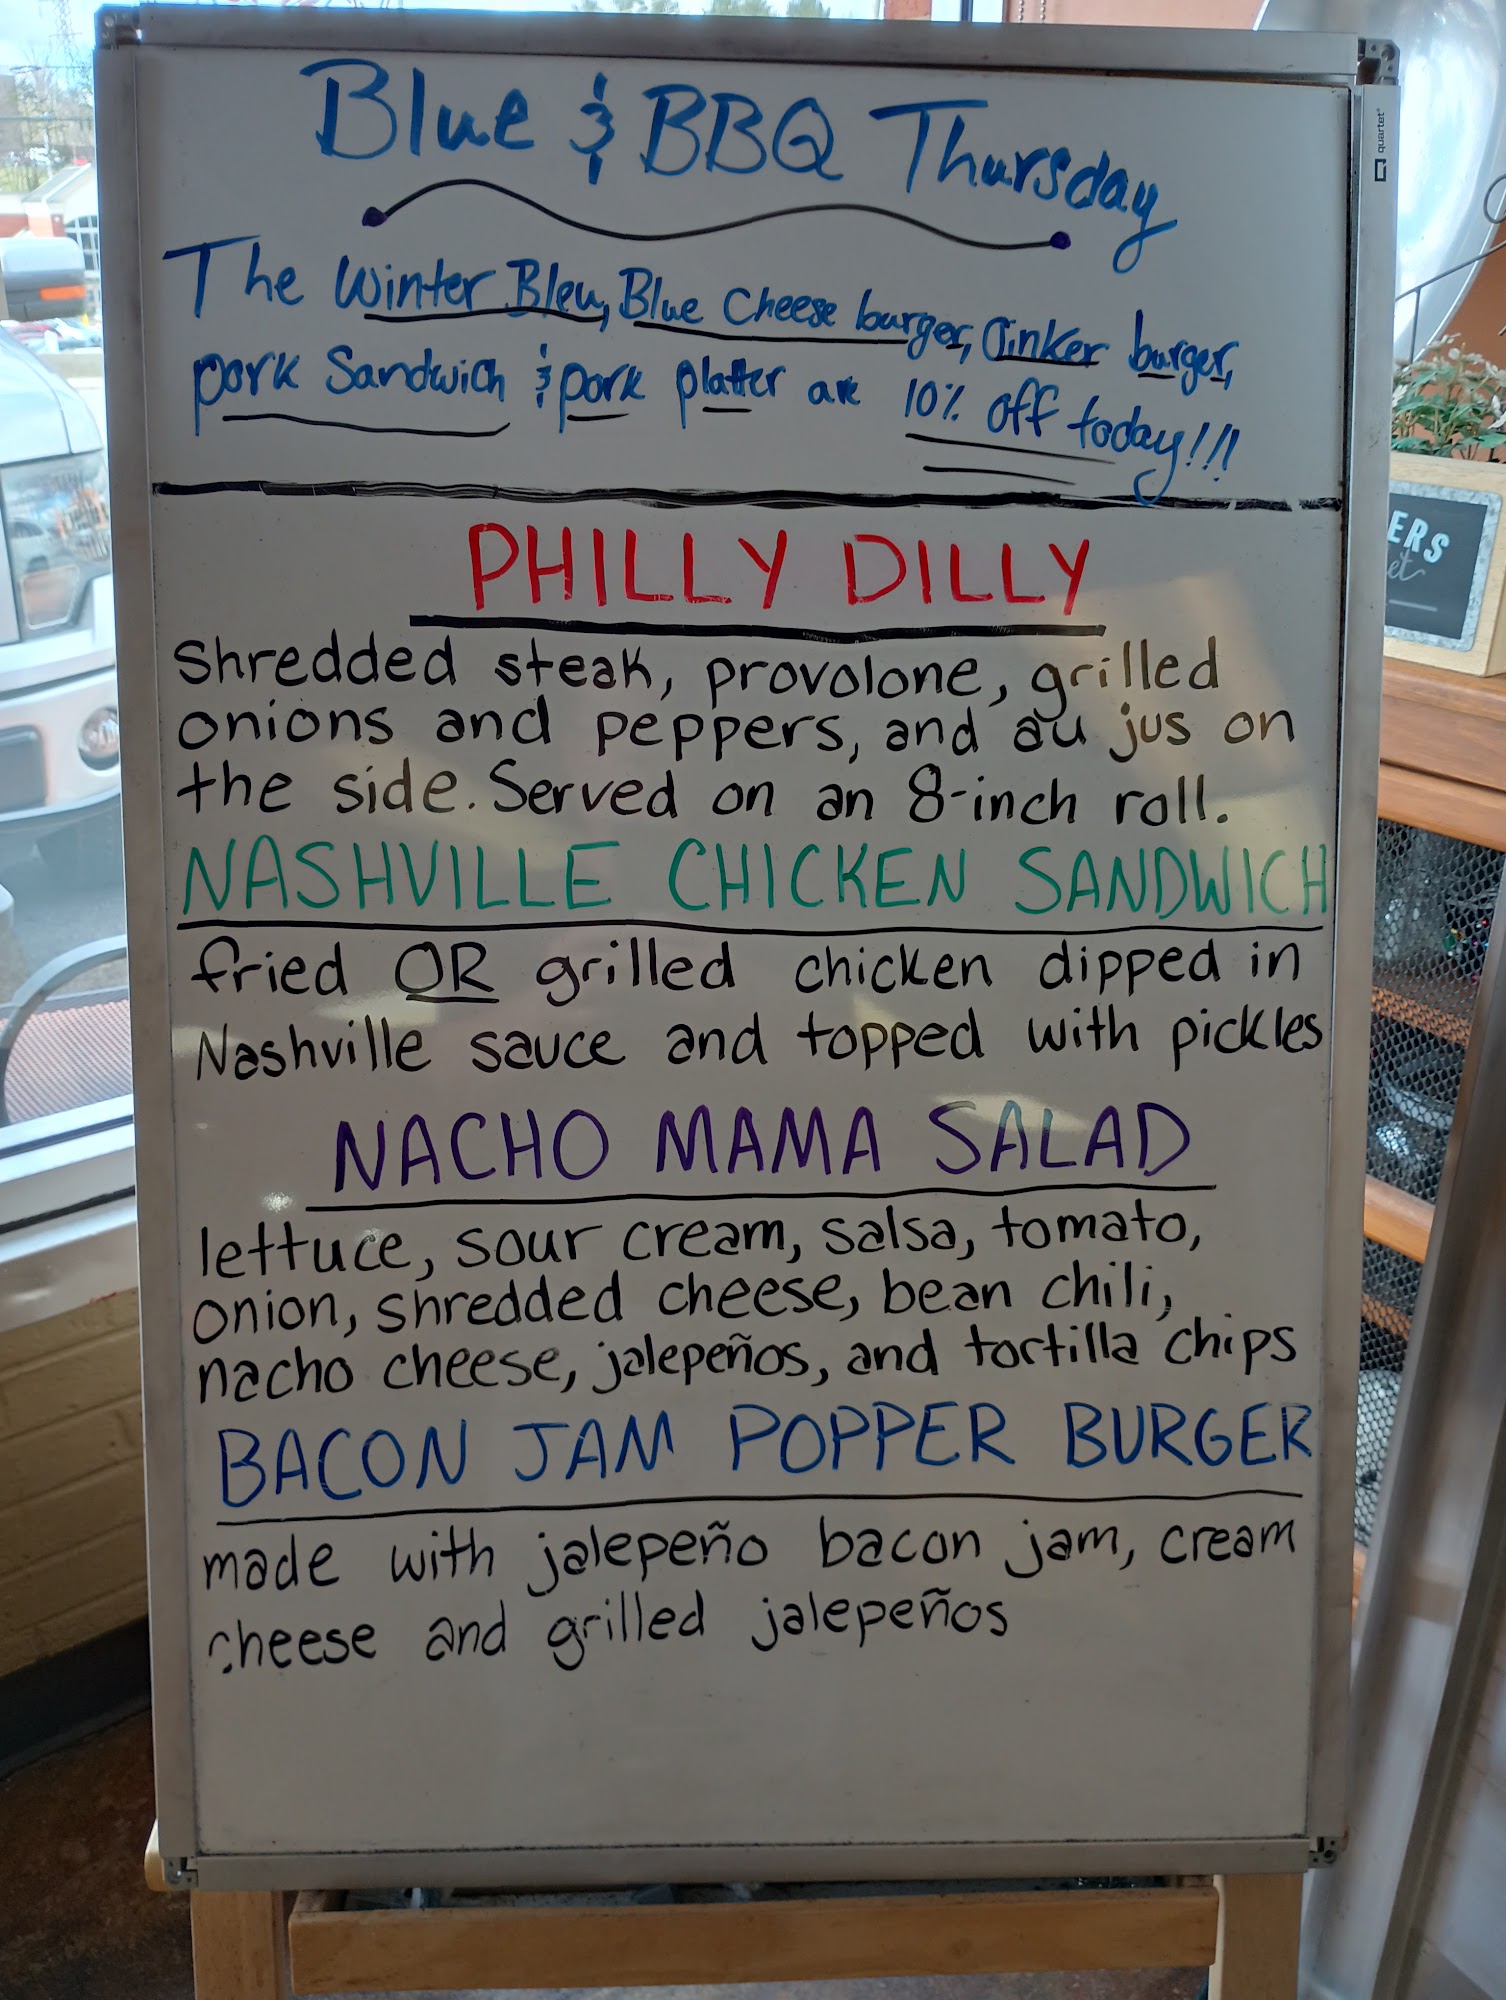 Blue & BBQ Thursday
The Winter Bleu, Blue Cheese burger, Oinker burger,
pork Sandwich & pork platter are 10% off today!!!
PHILLY DILLY
shredded steak, provolone, grilled
onions and peppers, and au jus on
the side. Served on an 8-inch roll.
NASHVILLE CHICKEN SANDWICH
fried OR grilled chicken dipped in
Nashville sauce and topped with pickles
NACHO MAMA SALAD
lettuce, sour cream, salsa, tomato,
onion, shredded cheese, bean chili,
nacho cheese, jalepeños, and tortilla chips
BACON JAM POPPER BURGER
made with jalepeño bacon jam, cream
cheese and grilled jalepeños
quartet
ERS
et